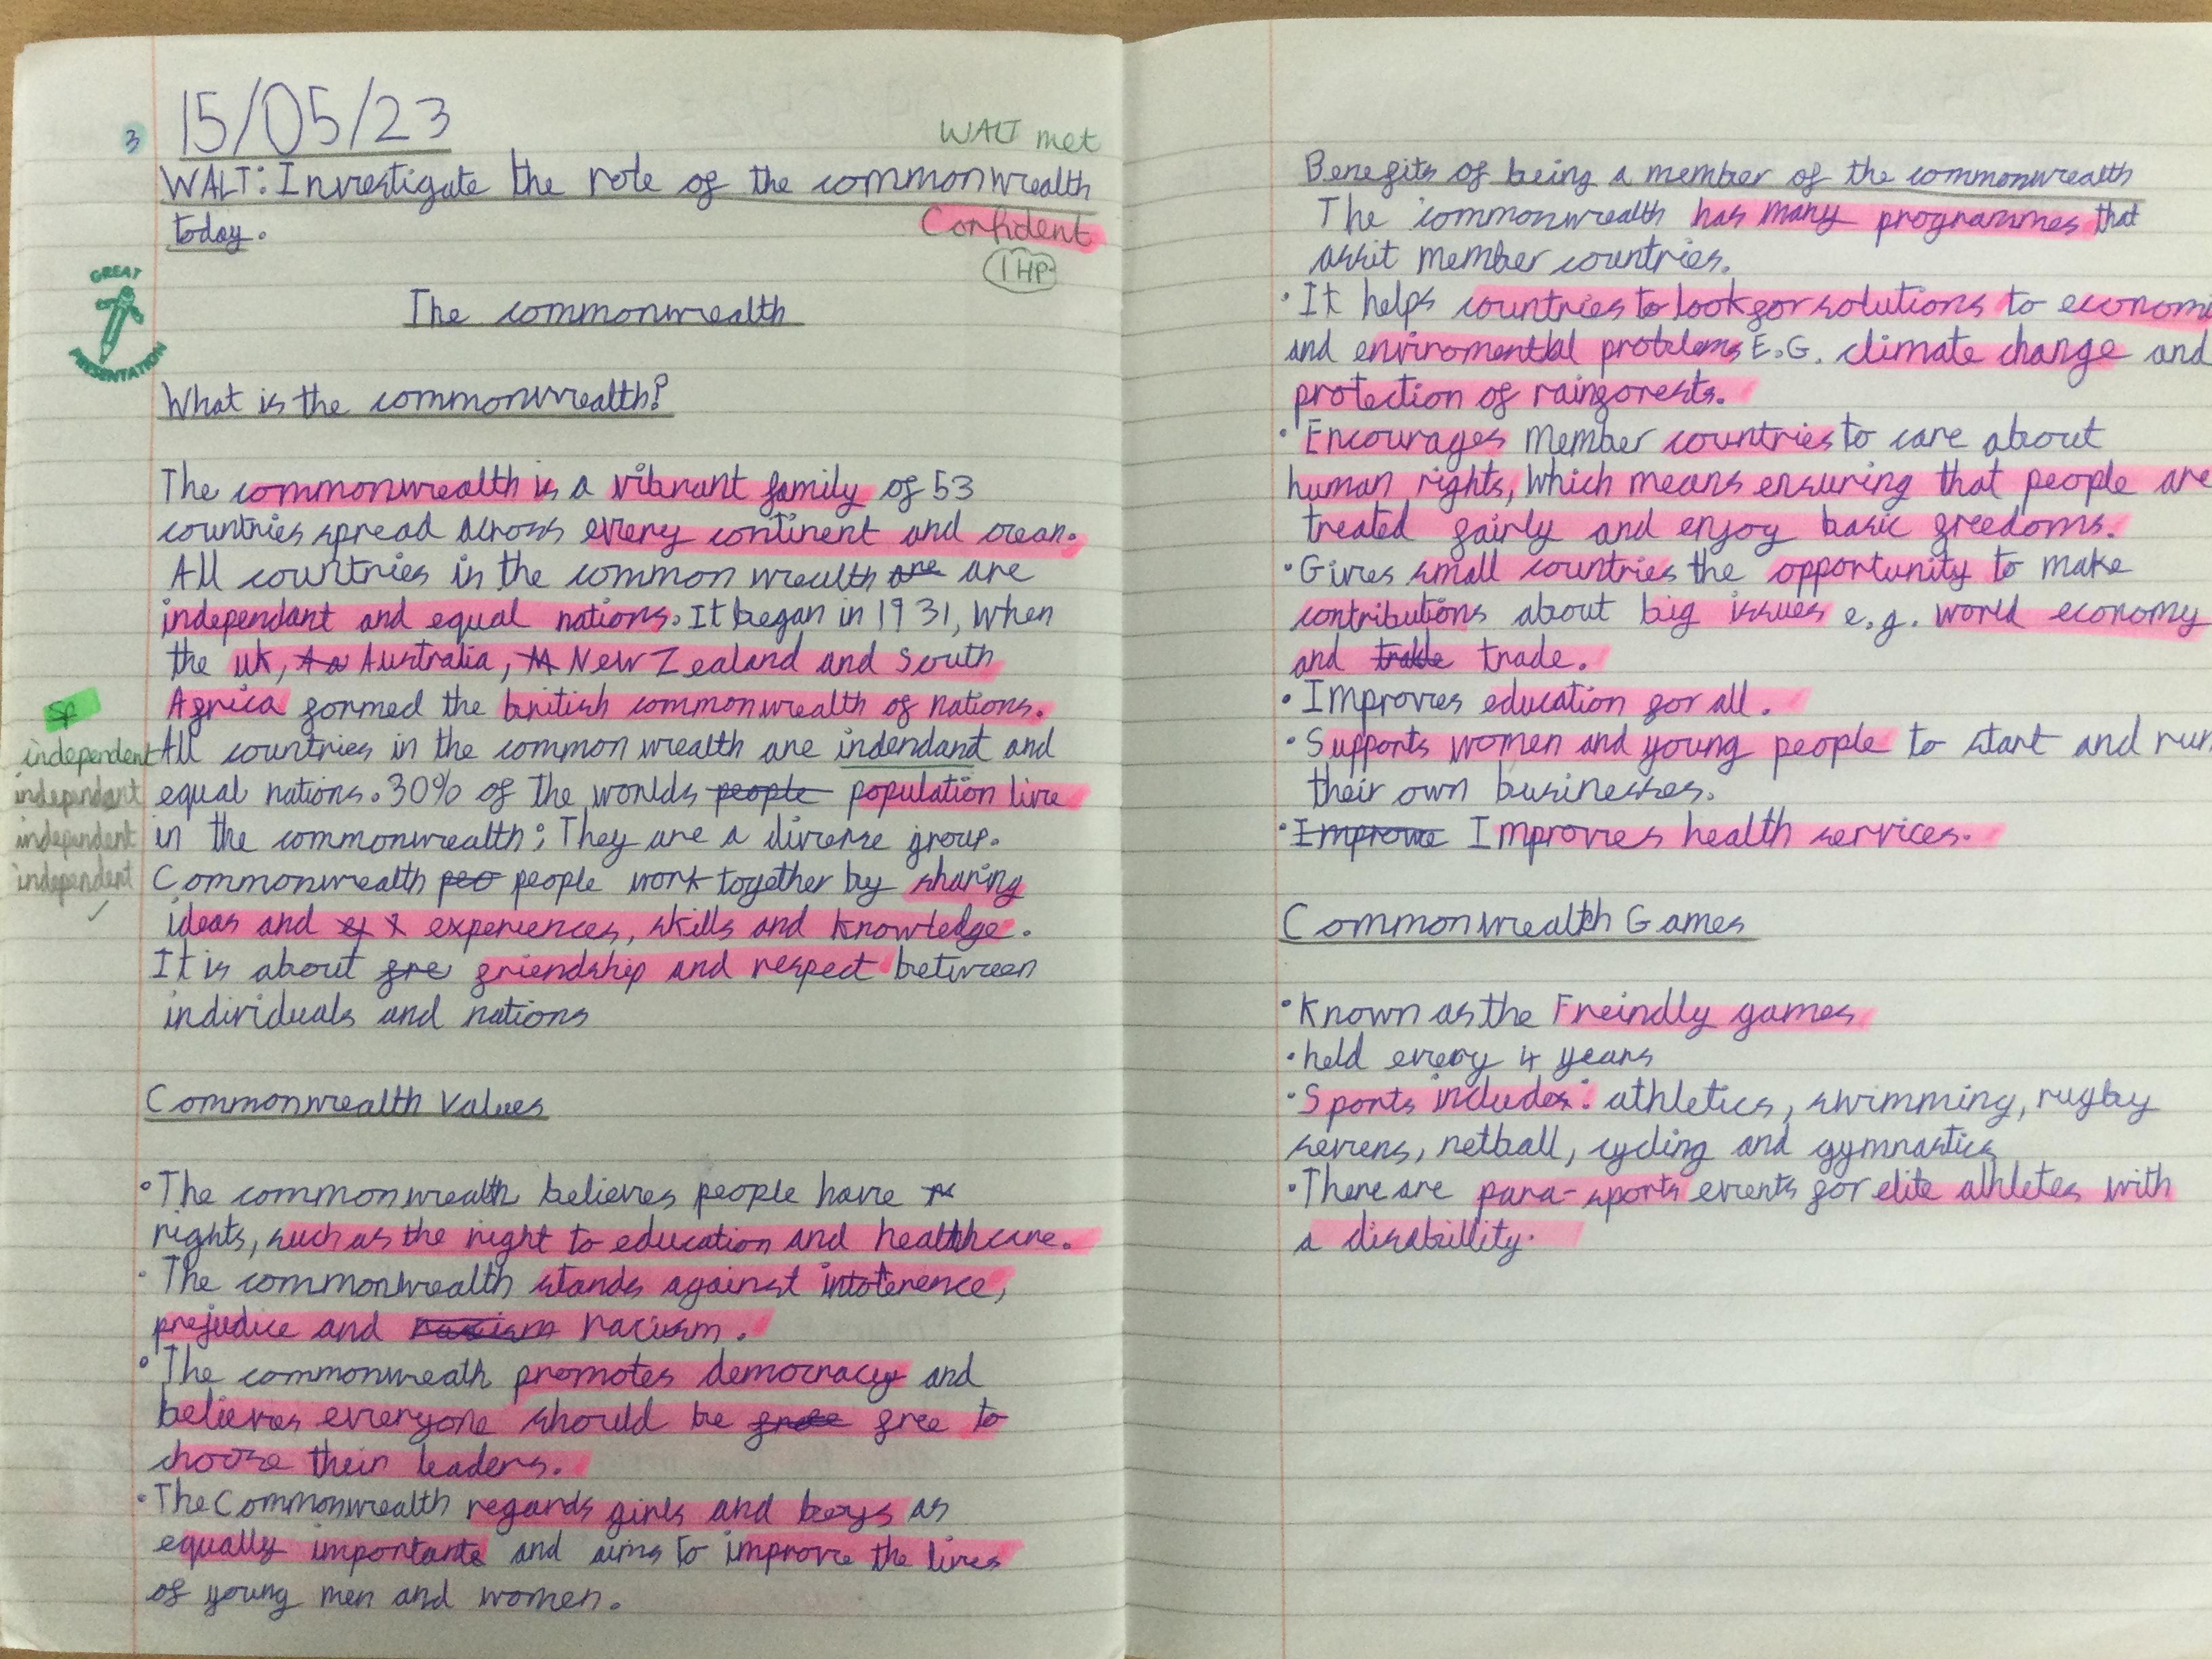 3
15/05/23
WALT met
WALT: Investigate the role of the commonwealth
today.
Confident
1HP
GREAT
PRESENTATION
The commonwealth
What is the commonwealth?
The commonwealth is a vibrant family of 53
countries spread across every continent and ocean.
All countries in the common wealth are are
independant and equal nations. It began in 1931, When
the uk, Au Australia, M New Zealand and South
Africa formed the british commonwealth of nations.
sp
independent
independent
independent
independent
All countries in the common wealth are indendant and
equal nations. 30% of the worlds people population live
in the commonwealth; They are a diverse group.
Commonwealth peo people work together by sharing
ideas and experiences, skills and knowledge.
It is about fre friendship and respect between
individuals and nations
Commonwealth Values
• The commonwealth believes people have
rights, such as the right to education and healthcare.
• The commonwealth stands against intolerence,
prejudice and racism racism.
• The commonweath promotes democracy and
believes everyone should be free to
choose their leaders.
• The Commonwealth regards girls and boys as
equally important and aims to improve the lives
of young men and women.
Benefits of being a member of the commonwealth
The commonwealth has many programmes that
assit member countries.
• It helps countries to look for solutions to economi
and enviromental problems E.G. climate change and
protection of rainforests.
• Encourages Member countries to care about
human rights, Which means ensuring that people are
treated fairly and enjoy basic freedoms.
• Gives small countries the opportunity to make
contributions about big issues e.g. world economy
and trade.
• Improves education for all.
• Supports women and young people to start and run
their own businesses.
• Improve Improves health services.
Commonwealth Games
• Known as the Freindly games
• held every 4 years
• Sports includes: athletics, swimming, rugby
sevens, netball, cycling and gymnastics
• There are para-sports events for elite athletes with
a disabillity.